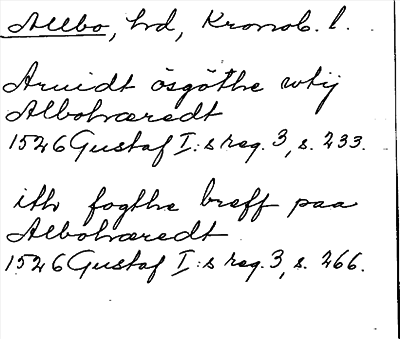 Allbo, hd, Kronob. l.
Aruidt ösgöthe vtij
Albohæredt
1526 Gustaf I:s reg. 3, s. 233.
ith fogthe breff paa
Albohæredt
1526 Gustaf I:s reg. 3, s. 266.